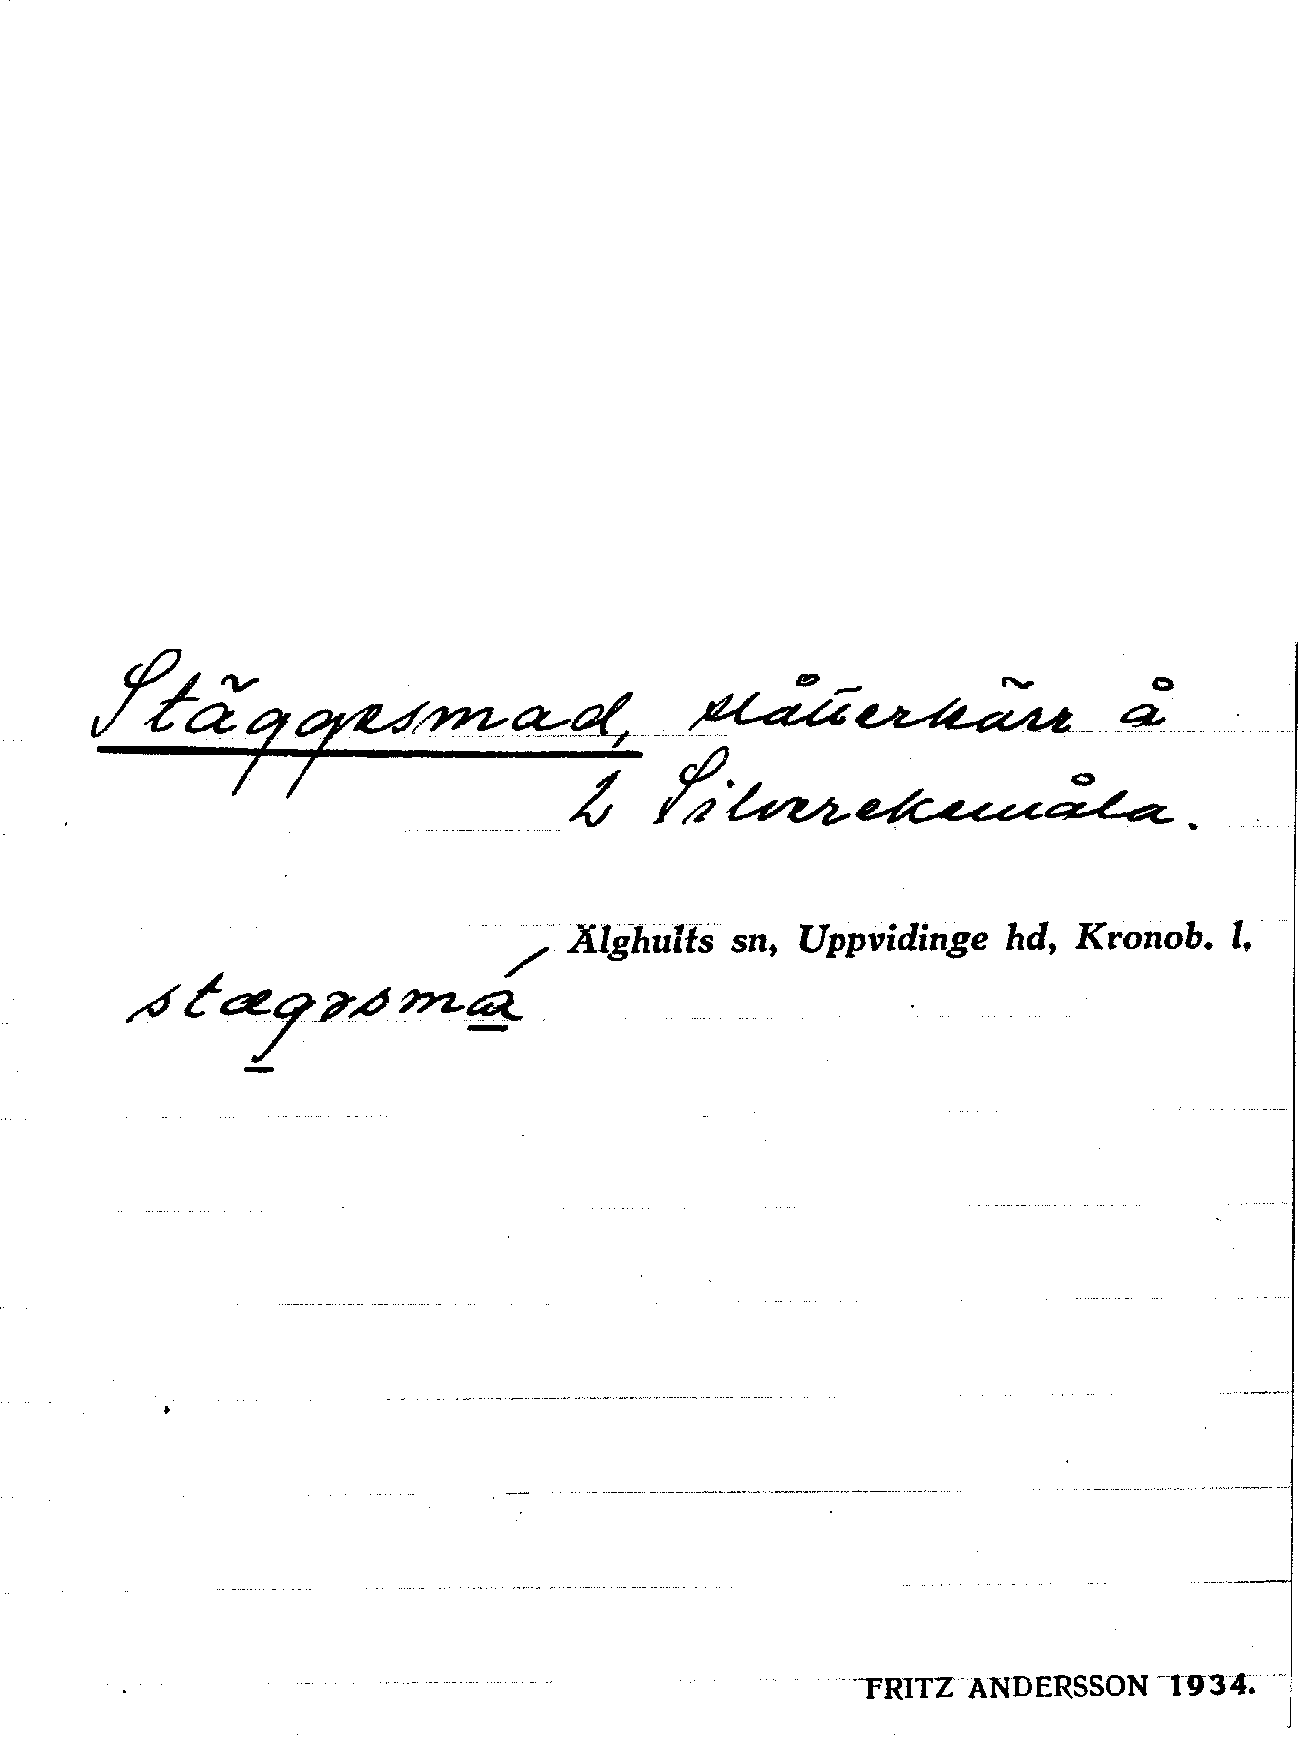 Stäggesmad, slåtterkärr å
2 Silverekemåla.
Älghults sn, Uppvidinge hd, Kronob. l.
stægəsmɑ
FRITZ ANDERSSON 1934.